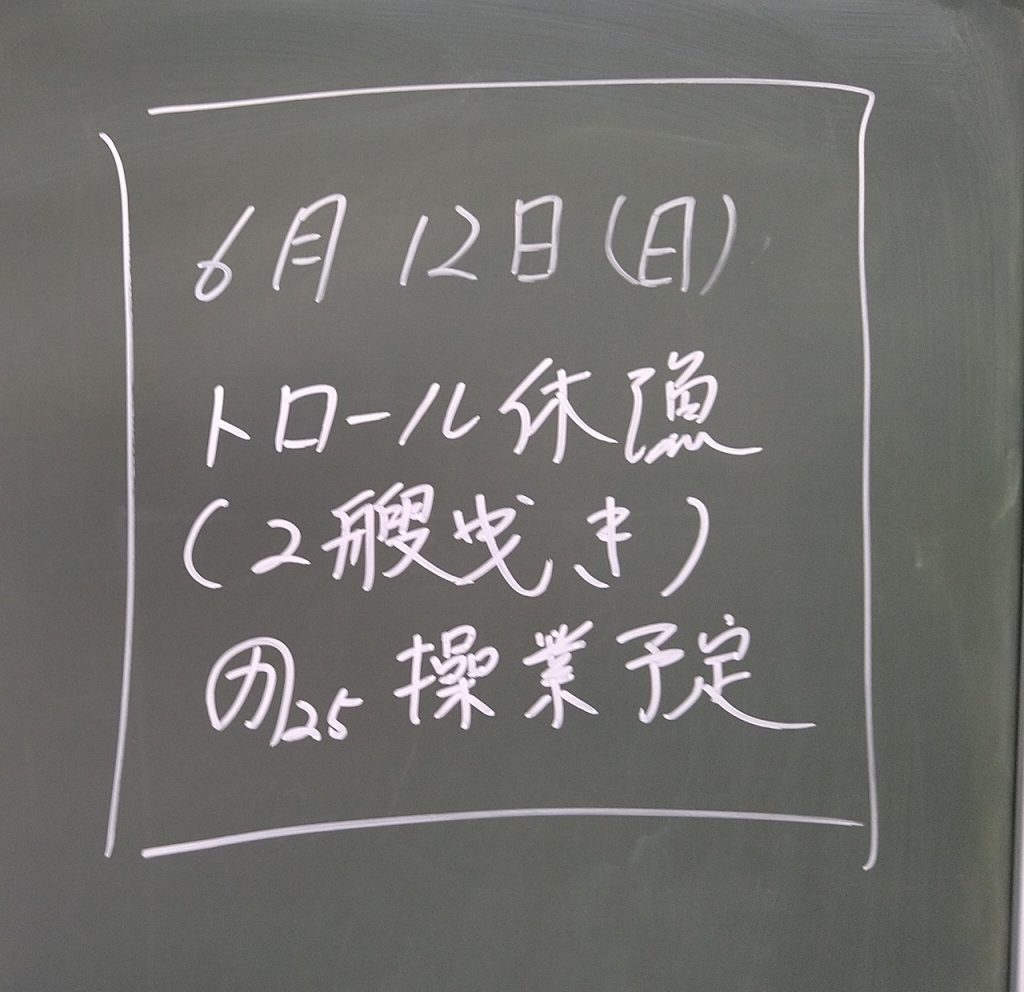 6月12日(日)
トロール休漁
(2艘曳き)
㋕25 操業予定